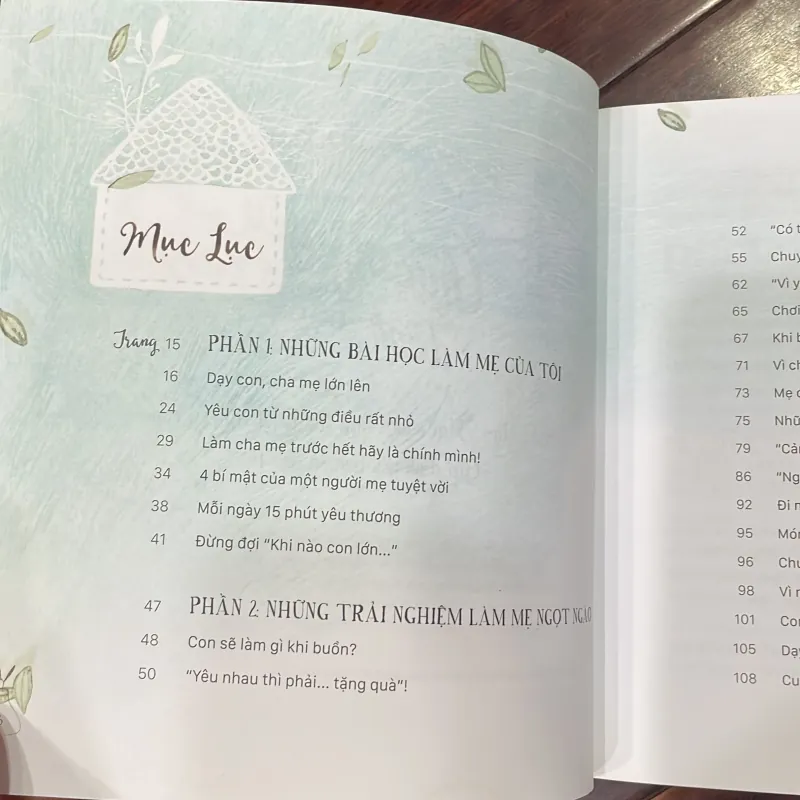 Mục Lục
Trang 15 PHẦN 1: NHỮNG BÀI HỌC LÀM MẸ CỦA TÔI
16 Dạy con, cha mẹ lớn lên
24 Yêu con từ những điều rất nhỏ
29 Làm cha mẹ trước hết hãy là chính mình!
34 4 bí mật của một người mẹ tuyệt vời
38 Mỗi ngày 15 phút yêu thương
41 Đừng đợi “Khi nào con lớn...”
47 PHẦN 2: NHỮNG TRẢI NGHIỆM LÀM MẸ NGỌT NGÀO
48 Con sẽ làm gì khi buồn?
50 “Yêu nhau thì phải... tặng quà”!
52 “Có
55
62 “Vì
65 Chơi
67 Khi
71 Vì
73 Mẹ
75
79
86
92 Đi
95
96
98 Vì
101
105
108